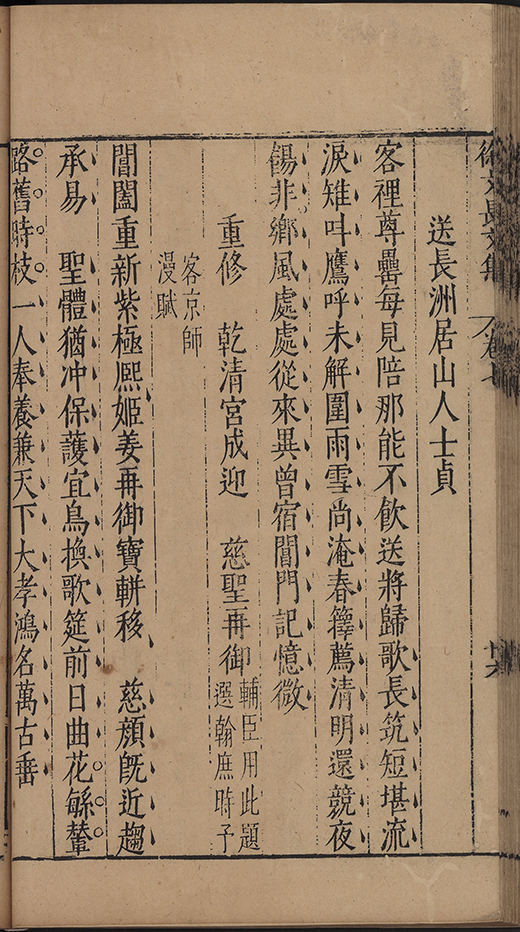 徐文長文集
卷七
十六
送長洲居山人士貞
客裡尊罍每見陪那能不飲送將歸歌長筑短堪流
淚雉呌鷹呼未解圍雨雪尚淹春籜薦清明還競夜
餳非鄉風處處從來異曾宿閶門記憶微
重修 乾清宮成迎 慈聖再御輔臣用此題
選翰庶時予
客京師
漫賦
閶闔重新紫極熙姬姜再御寶軿移 慈顏旣近趨
承易 聖體猶冲保護宜鳥換歌筵前日曲花縣輦
路舊時枝一人奉養兼天下大孝鴻名萬古垂